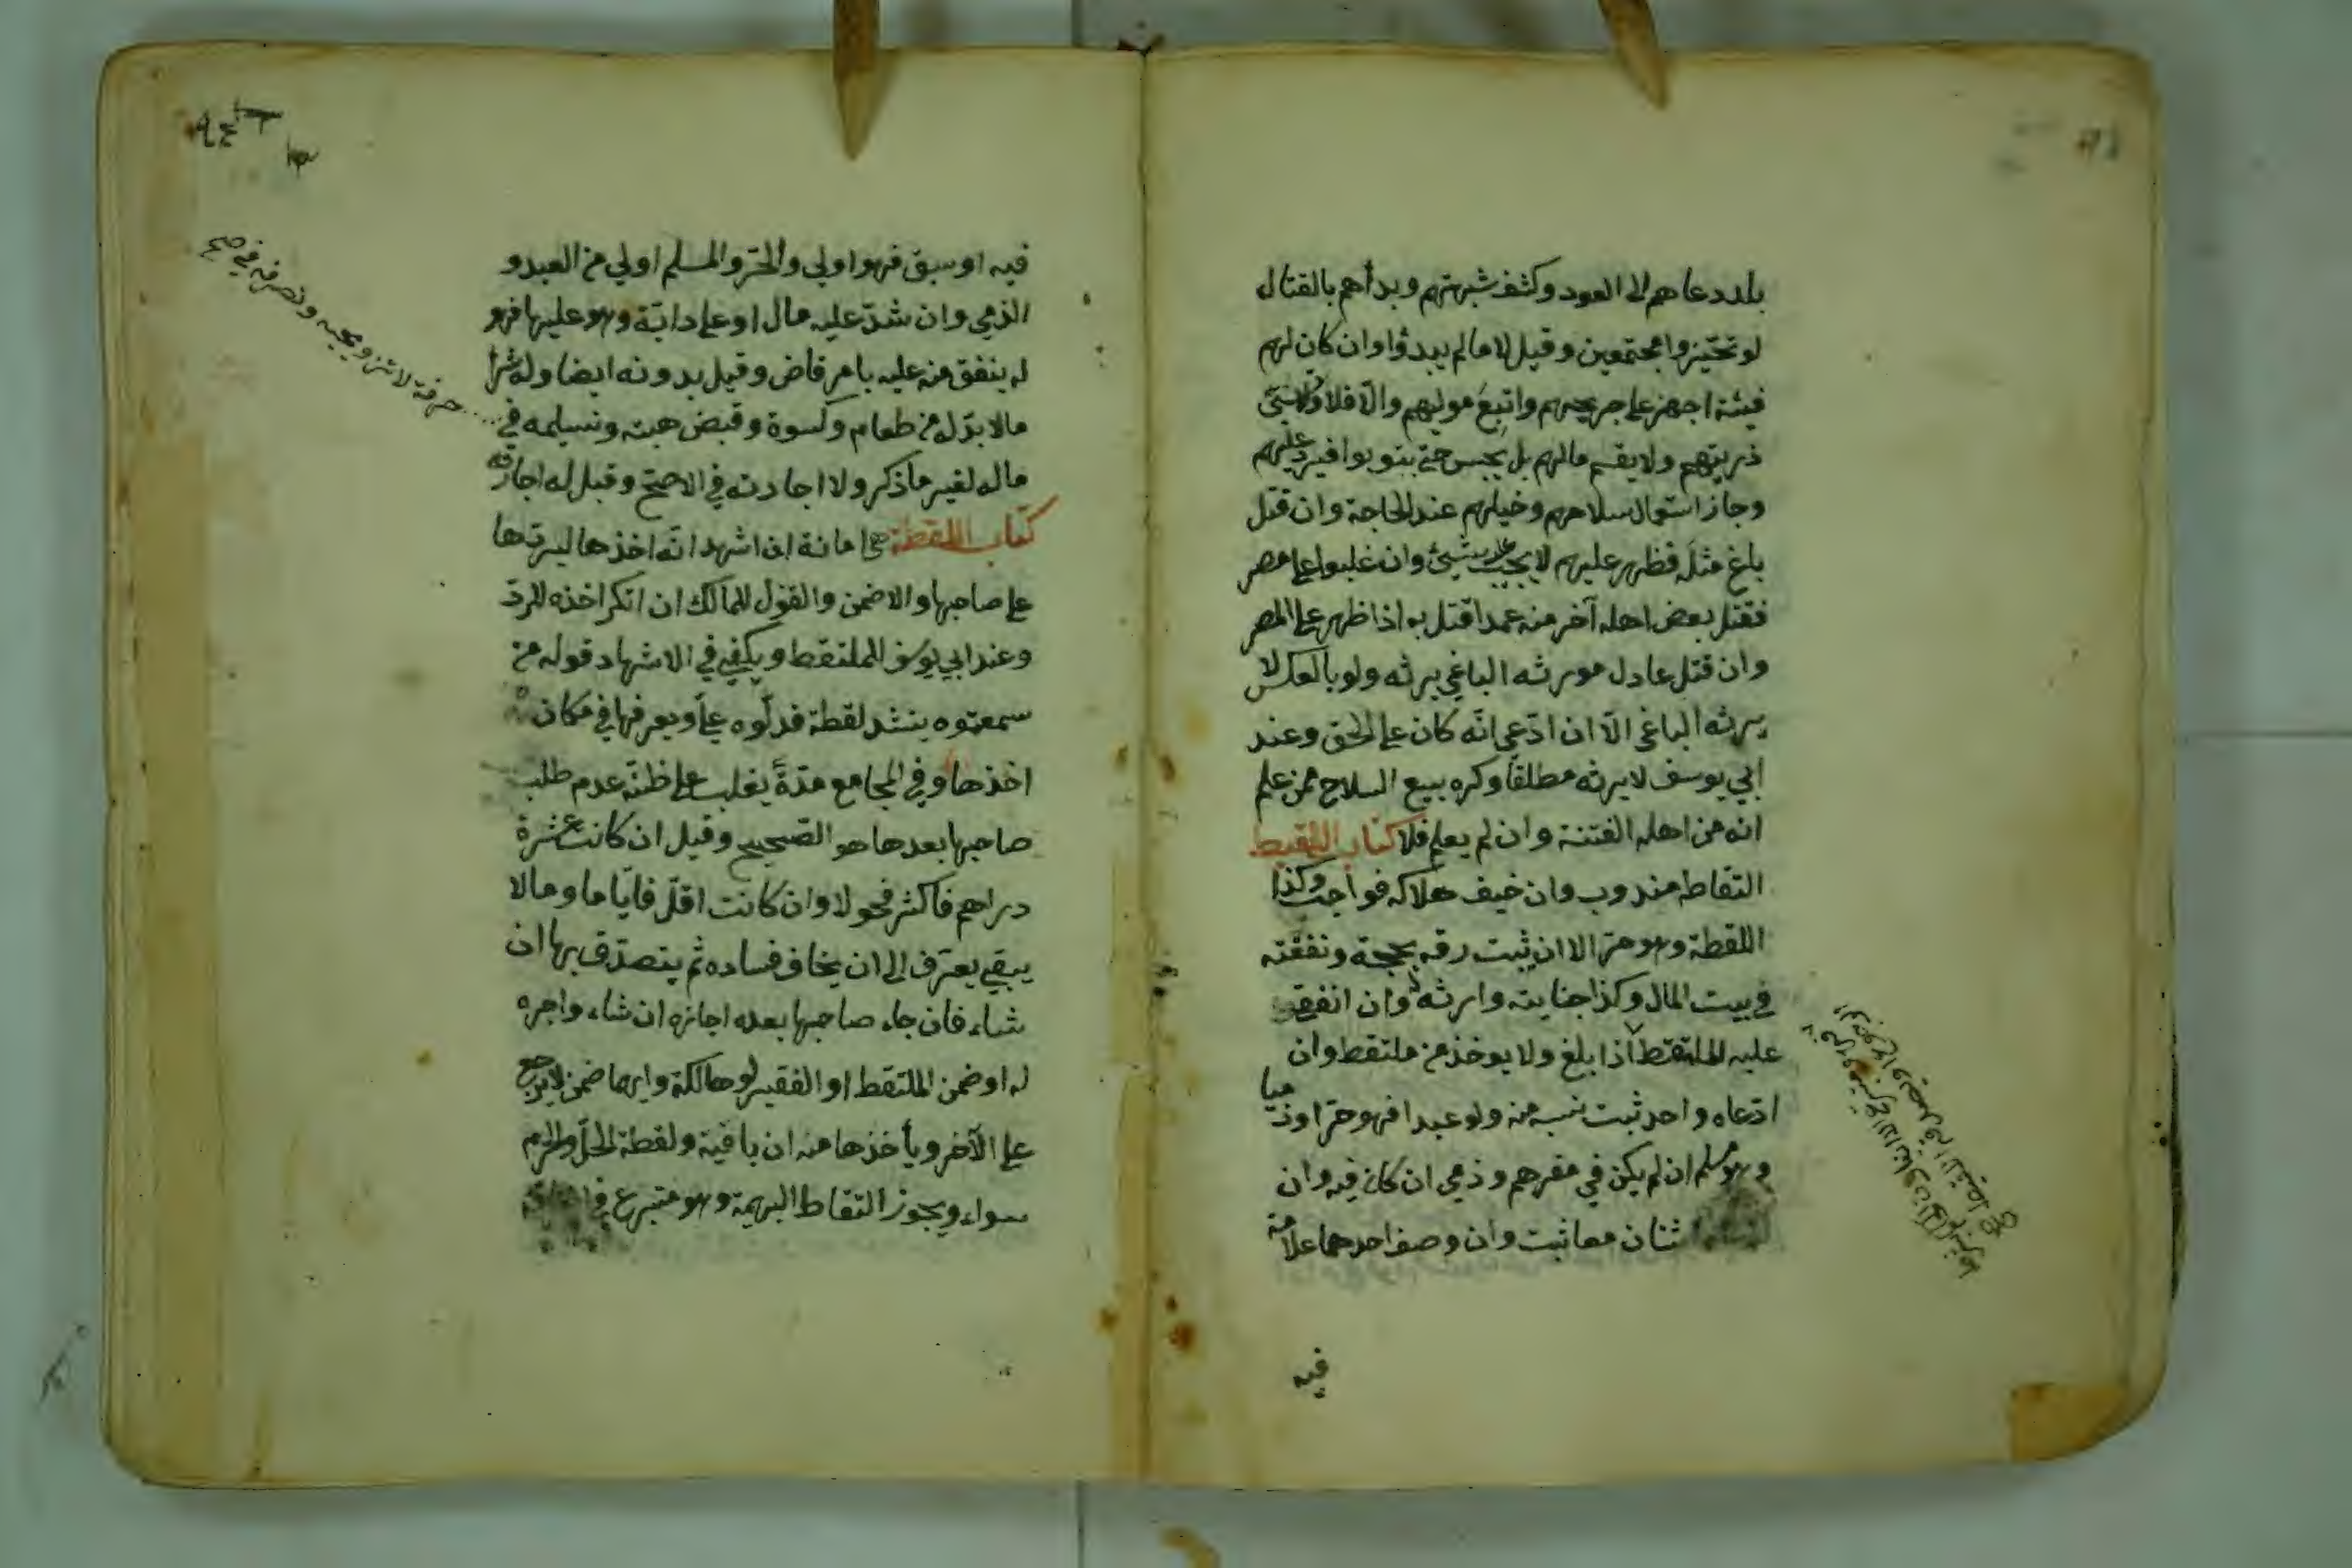 بلد دعاهم الى العود وكشف شبهتهم وبدأهم بالقتال
لو تحيّزوا مجتمعين وقيل لا مالم يبدؤا وان كان لهم
فيئة اجهز على جريحهم واتبع موليهم والّا فلا ولا تسبى
ذريتهم ولا يقسم مالهم بل يحبس حتى يتوبوا فيرد عليهم
وجاز استعمال سلاحهم وخيلهم عند الحاجة وان قتل
باغ مثله فظهر عليهم لا يجب شيئ وان غلبوا على مصر
فقتل بعض اهله آخر منه عمدا قتل به اذا ظهر على المصر
وان قتل عادل مورثه الباغي يرثه ولو بالعكس لا
يرثه الباغي الّا ان ادّعى انّه كان على الحق وعند
ابي يوسف لا يرثه مطلقا وكره بيع السلاح ممن علم
انه من اهل الفتنة وان لم يعلم فلا كتاب اللقيط
التقاطه مندوب وان خيف هلاكه فواجب وكذا
اللقطة وهو حرّ الا ان يثبت رقه بحجة ونفقته
في بيت المال وكذا جنايته وارثه له وان انفق
عليه الملتقط اذا بلغ ولا يوخذ من ملتقط وان
ادّعاه واحد ثبت نسبه منه ولو عبدا فهو حرّ او ذميا
وهو مسلم ان لم يكن في مقرهم وذمي ان كان فيه وان
اثنان معا ثبت وان وصف احدهما علامة
فيه
فيه او سبق فهو اولى والحرّ والمسلم اولى من العبد و
الذمي وان شدّ عليه مال او على دابّة وهو عليها فهو
له ينفق منه عليه بامر قاض وقيل بدونه ايضا وله شرا
مالا بدّ له من طعام وكسوة وقبض هبته وتسليمه في
حرفة لا تزويجه وتصرفه في صح
ماله لغير ما ذكر ولا اجارته في الاصحّ وقيل له اجارته
كتاب اللقطة هي امانة ان اشهد انّه اخذها ليردّها
على صاحبها والا ضمن والقول للمالك ان انكر اخذه للردّ
وعند ابي يوسف للملتقط ويكفيه في الاشهاد قوله من
سمعتموه ينشد لقطة فدلّوه عليّ ويعرفها في مكان
اخذها وفي المجامع مدّة يغلب على ظنّه عدم طلب
صاحبها بعدها هو الصحيح وقيل ان كانت عشرة
دراهم فاكثر فحولا وان كانت اقلّ فايّاما وما لا
يبقى يعرّف الى ان يخاف فساده ثم يتصدّق بها ان
شاء فان جاء صاحبها بعده اجازه ان شاء واجره
له او ضمن الملتقط او الفقير لو هالكة وايهما ضمن لا يرجع
على الآخر ويأخذها منه ان باقية ولقطة الحلّ والحرم
سواء ويجوز التقاط البهيمة وهو متبرع في